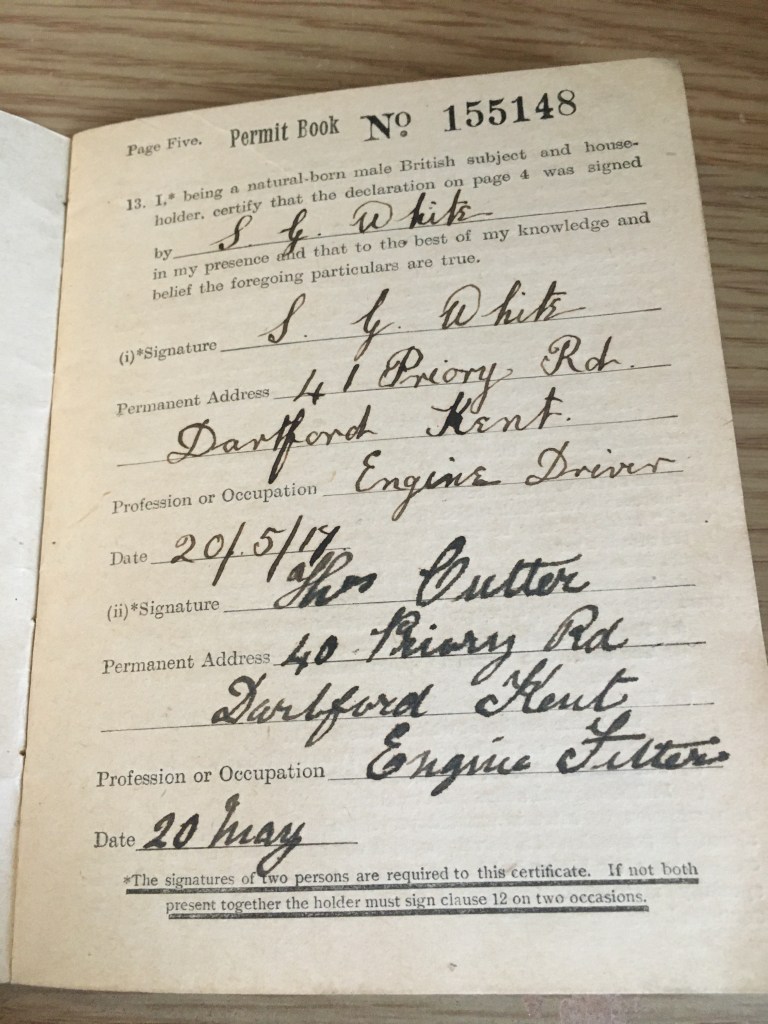 Page Five. Permit Book No. 155148
13. I,* being a natural-born male British subject and house-
holder, certify that the declaration on page 4 was signed
by S. G. White
in my presence and that to the best of my knowledge and
belief the foregoing particulars are true.
(i)*Signature S. G. White
Permanent Address 41 Priory Rd.
Dartford Kent.
Profession or Occupation Engine Driver
Date 20/5/17
(ii)*Signature Thos Cutter
Permanent Address 40 Priory Rd
Dartford Kent
Profession or Occupation Engine Fitter
Date 20 May
*The signatures of two persons are required to this certificate. If not both
present together the holder must sign clause 12 on two occasions.